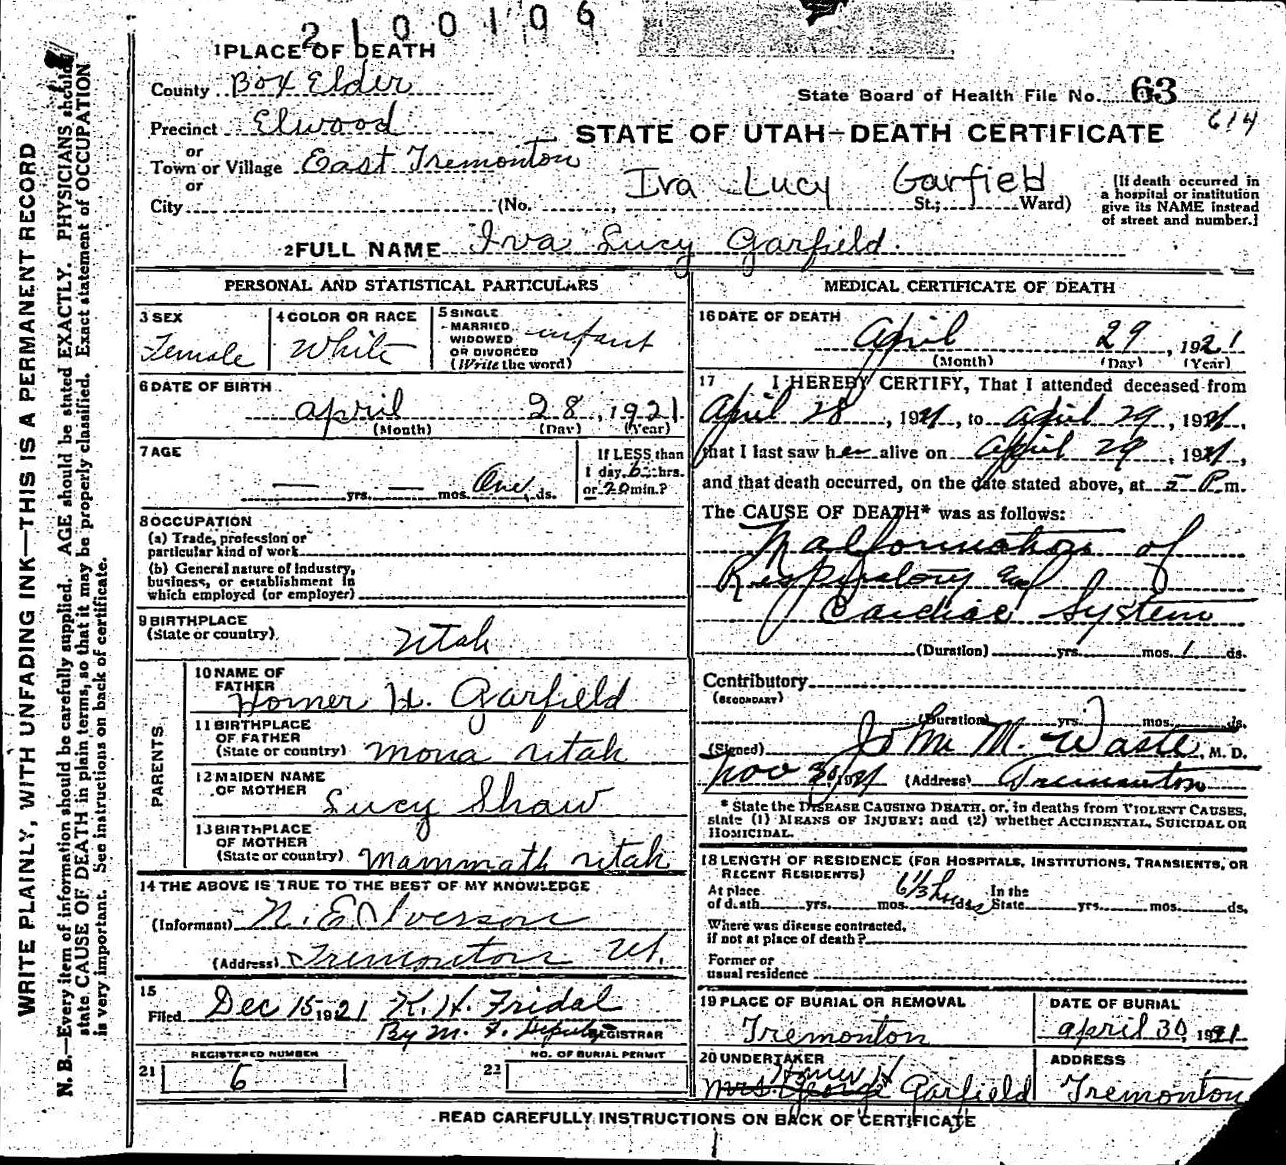 2100106
1 PLACE OF DEATH
County Box Elder
State Board of Health File No. 63
614
Precinct Elwood
STATE OF UTAH—DEATH CERTIFICATE
or
Town or Village East Tremonton
or
Iva Lucy Garfield
City (No. , St.; Ward)
[If death occurred in
a hospital or institution
give its NAME instead
of street and number.]
2 FULL NAME Iva Lucy Garfield.
PERSONAL AND STATISTICAL PARTICULARS
3 SEX
Female
4 COLOR OR RACE
White
5 SINGLE
MARRIED
WIDOWED
OR DIVORCED
(Write the word)
infant
6 DATE OF BIRTH
april 28, 1921
(Month) (Day) (Year)
7 AGE
— yrs. — mos. One ds.
If LESS than
1 day, 6 hrs.
or 20 min.?
8 OCCUPATION
(a) Trade, profession or
particular kind of work
(b) General nature of industry,
business, or establishment in
which employed (or employer)
9 BIRTHPLACE
(State or country)
Utah
PARENTS
10 NAME OF
FATHER
Homer H. Garfield
11 BIRTHPLACE
OF FATHER
(State or country) Mona Utah
12 MAIDEN NAME
OF MOTHER
Lucy Shaw
13 BIRTHPLACE
OF MOTHER
(State or country) Mammath Utah
14 THE ABOVE IS TRUE TO THE BEST OF MY KNOWLEDGE
(Informant) N. E. Iverson
(Address) Tremonton Ut.
15
Filed Dec 15 1921 K. H. Fridal
By M. F. Deputy REGISTRAR
REGISTERED NUMBER
21 6
NO. OF BURIAL PERMIT
22
MEDICAL CERTIFICATE OF DEATH
16 DATE OF DEATH
April 29, 1921
(Month) (Day) (Year)
17 I HEREBY CERTIFY, That I attended deceased from
April 28, 1921, to April 29, 1921,
that I last saw her alive on April 29, 1921,
and that death occurred, on the date stated above, at P.m.
The CAUSE OF DEATH* was as follows:
Malformation of
Respiratory and
Cardiac System
(Duration) yrs. mos. 1 ds.
Contributory
(SECONDARY)
(Duration) yrs. mos. ds.
(Signed) John M. Waste, M. D.
Nov 30 1921 (Address) Tremonton
* State the DISEASE CAUSING DEATH, or, in deaths from VIOLENT CAUSES,
state (1) MEANS OF INJURY; and (2) whether ACCIDENTAL, SUICIDAL OR
HOMICIDAL.
18 LENGTH OF RESIDENCE (FOR HOSPITALS, INSTITUTIONS, TRANSIENTS, OR
RECENT RESIDENTS)
At place
of death yrs. mos. 6 1/3 hrs ds. In the
State yrs. mos. ds.
Where was disease contracted,
if not at place of death?
Former or
usual residence
19 PLACE OF BURIAL OR REMOVAL
Tremonton
DATE OF BURIAL
april 30, 1921
20 UNDERTAKER
Homer H
Mrs. George Garfield
ADDRESS
Tremonton
READ CAREFULLY INSTRUCTIONS ON BACK OF CERTIFICATE
WRITE PLAINLY, WITH UNFADING INK—THIS IS A PERMANENT RECORD
N. B.—Every item of information should be carefully supplied. AGE should be stated EXACTLY. PHYSICIANS should
state CAUSE OF DEATH in plain terms, so that it may be properly classified. Exact statement of OCCUPATION
is very important. See instructions on back of certificate.